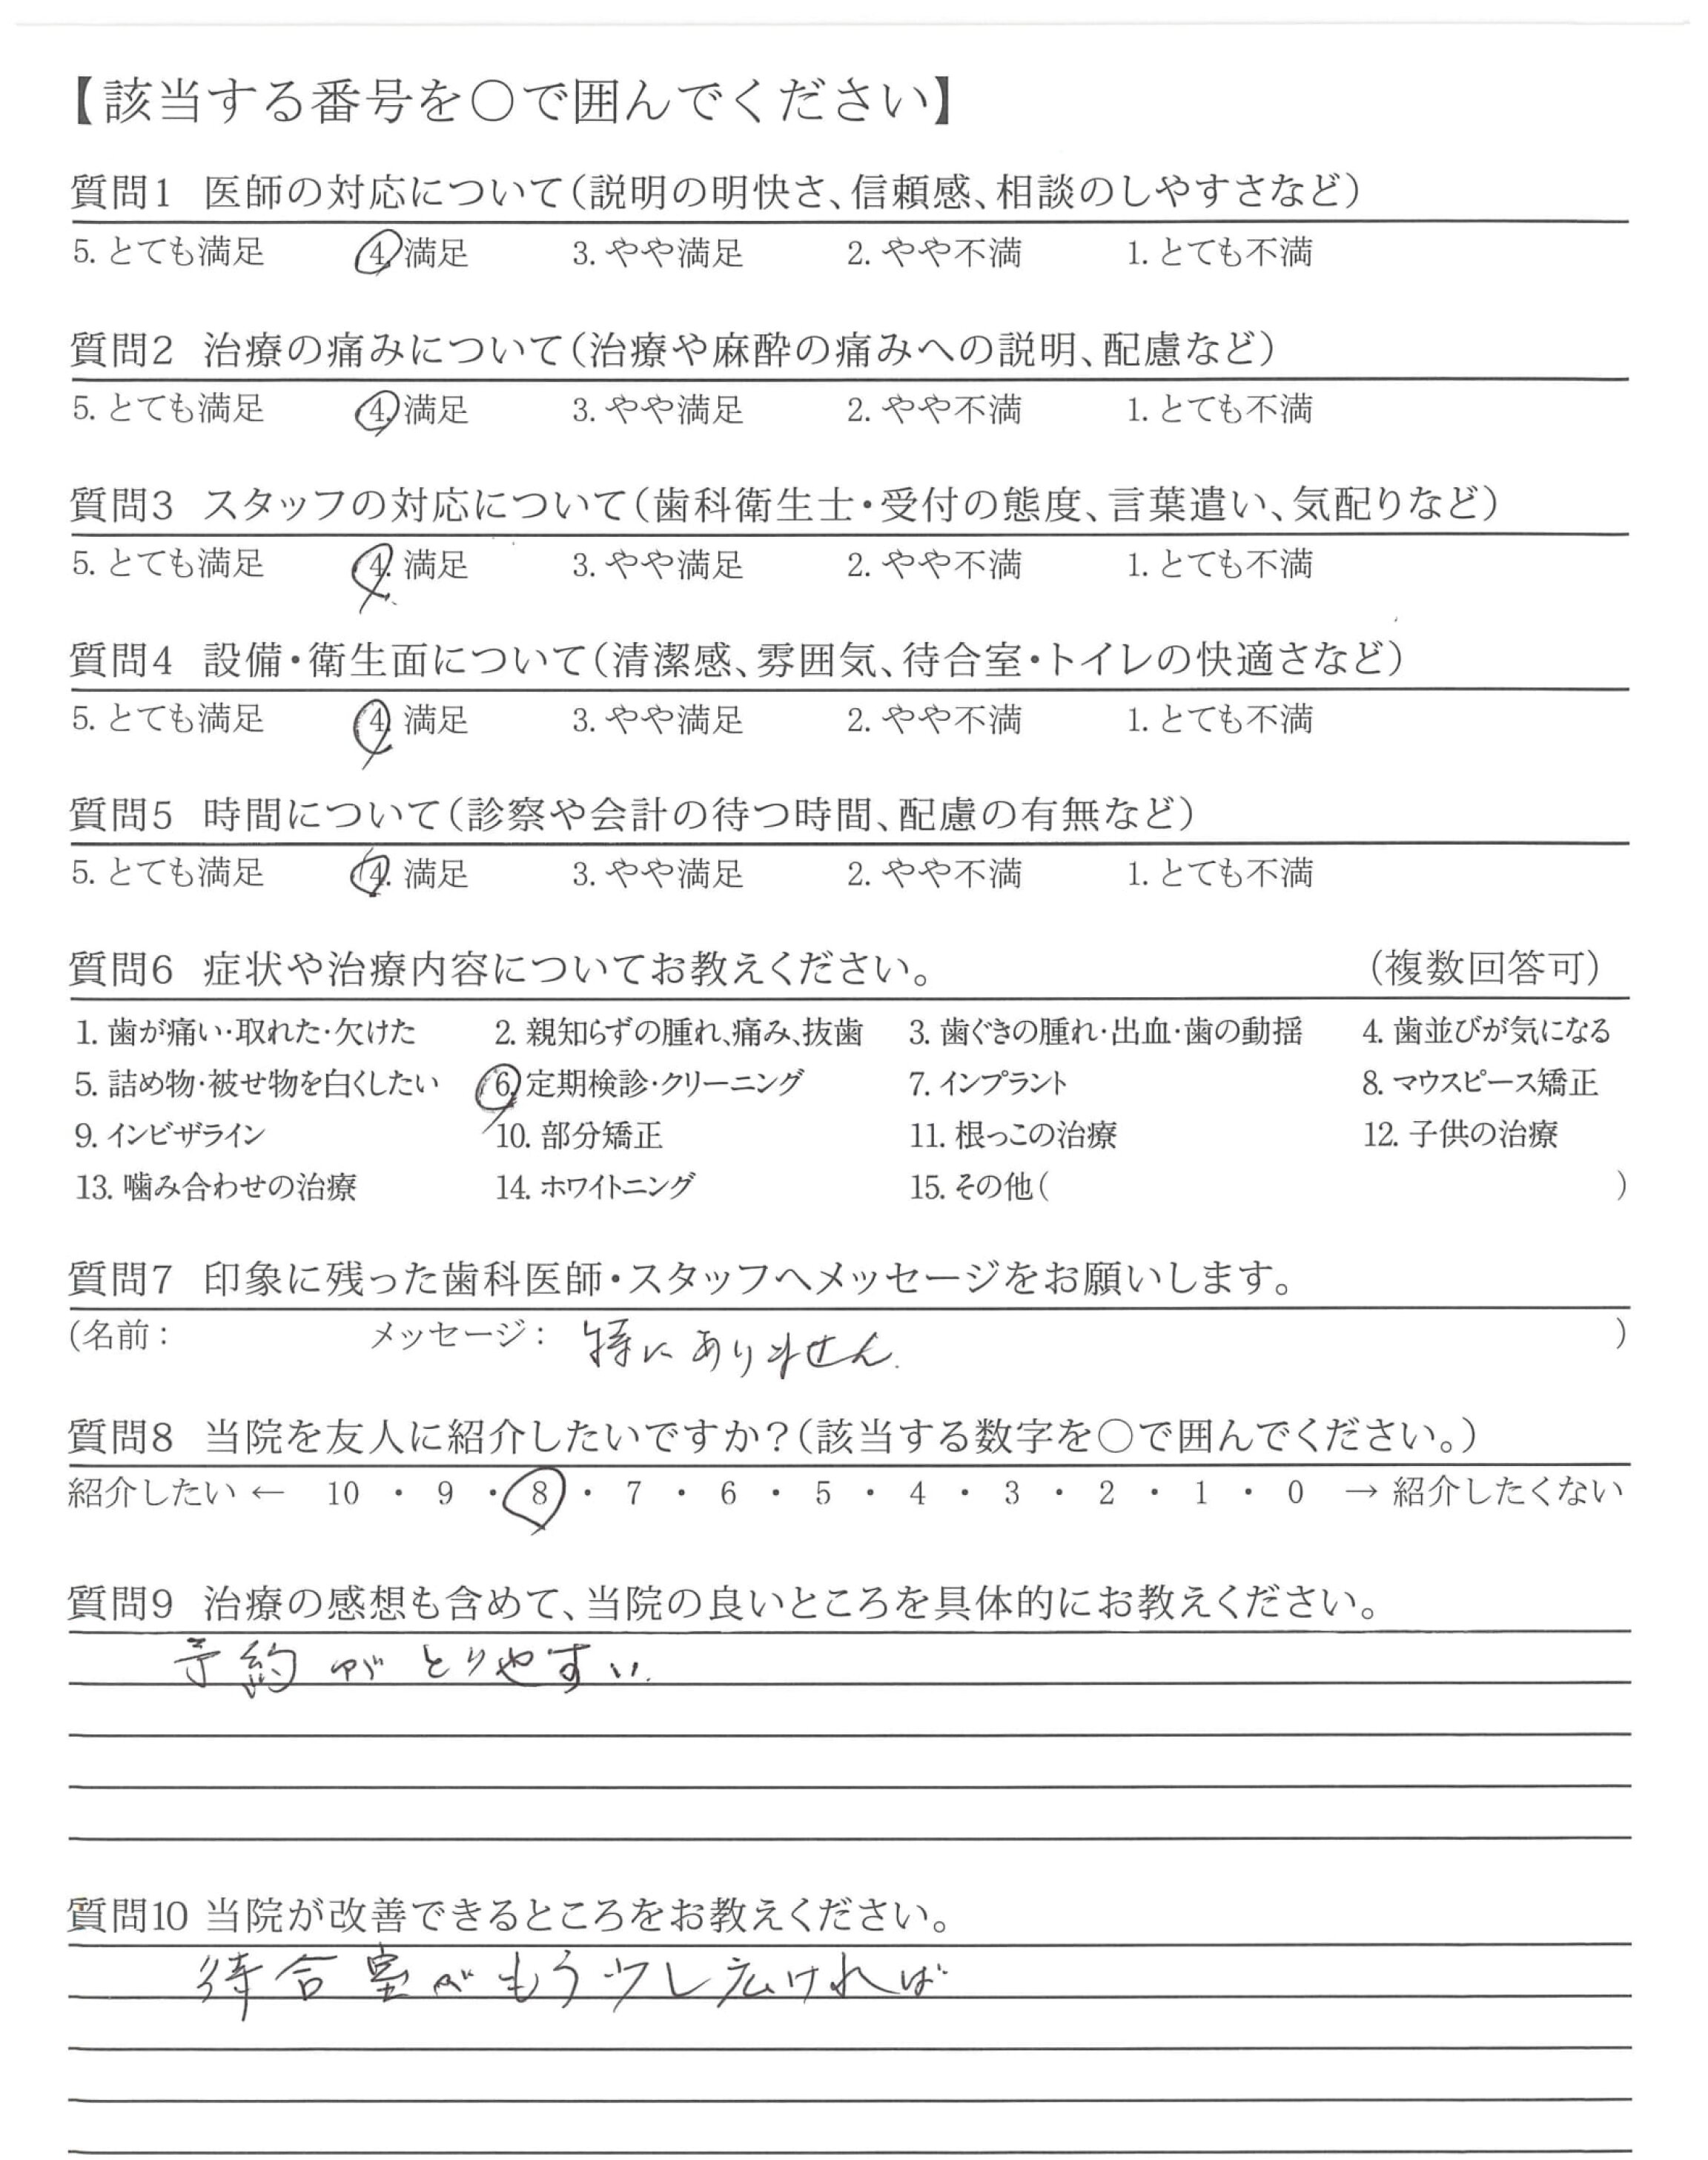 【該当する番号を○で囲んでください】
質問1 医師の対応について（説明の明快さ、信頼感、相談のしやすさなど）
5. とても満足 4. 満足 3. やや満足 2. やや不満 1. とても不満
質問2 治療の痛みについて（治療や麻酔の痛みへの説明、配慮など）
5. とても満足 4. 満足 3. やや満足 2. やや不満 1. とても不満
質問3 スタッフの対応について（歯科衛生士・受付の態度、言葉遣い、気配りなど）
5. とても満足 4. 満足 3. やや満足 2. やや不満 1. とても不満
質問4 設備・衛生面について（清潔感、雰囲気、待合室・トイレの快適さなど）
5. とても満足 4. 満足 3. やや満足 2. やや不満 1. とても不満
質問5 時間について（診察や会計の待つ時間、配慮の有無など）
5. とても満足 4. 満足 3. やや満足 2. やや不満 1. とても不満
質問6 症状や治療内容についてお教えください。 （複数回答可）
1. 歯が痛い・取れた・欠けた 2. 親知らずの腫れ、痛み、抜歯 3. 歯ぐきの腫れ・出血・歯の動揺 4. 歯並びが気になる
5. 詰め物・被せ物を白くしたい 6. 定期検診・クリーニング 7. インプラント 8. マウスピース矯正
9. インビザライン 10. 部分矯正 11. 根っこの治療 12. 子供の治療
13. 噛み合わせの治療 14. ホワイトニング 15. その他（ ）
質問7 印象に残った歯科医師・スタッフへメッセージをお願いします。
（名前： メッセージ： 特にありません. ）
質問8 当院を友人に紹介したいですか？（該当する数字を○で囲んでください。）
紹介したい ← 10 ・ 9 ・ 8 ・ 7 ・ 6 ・ 5 ・ 4 ・ 3 ・ 2 ・ 1 ・ 0 → 紹介したくない
質問9 治療の感想も含めて、当院の良いところを具体的にお教えください。
予約がとりやすい.
質問10 当院が改善できるところをお教えください。
待合室がもう少し広ければ